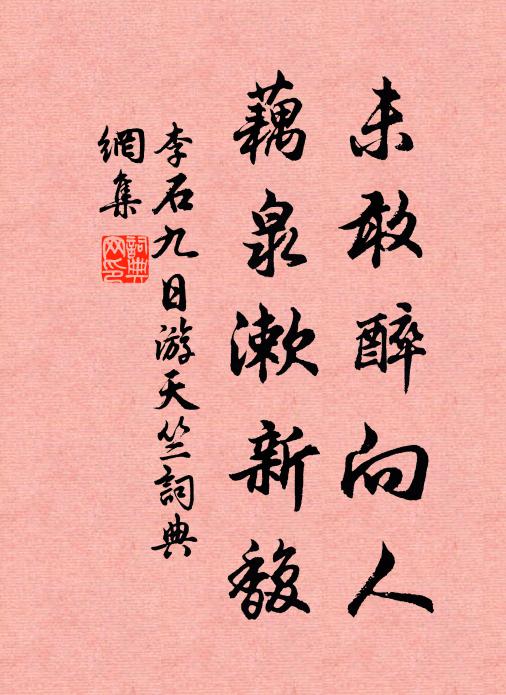 未敢醉向人
藕泉漱新馥
李石九日游天竺詞典
網集
詞典
网印